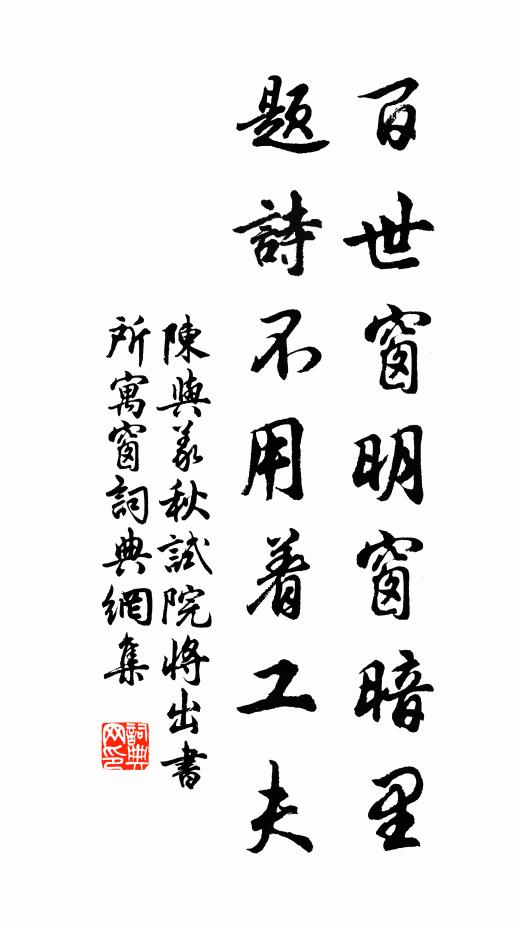 百世窗明窗暗里
題詩不用着工夫
陳與義秋試院将出書
所寓窗詞典網集
詞典网印